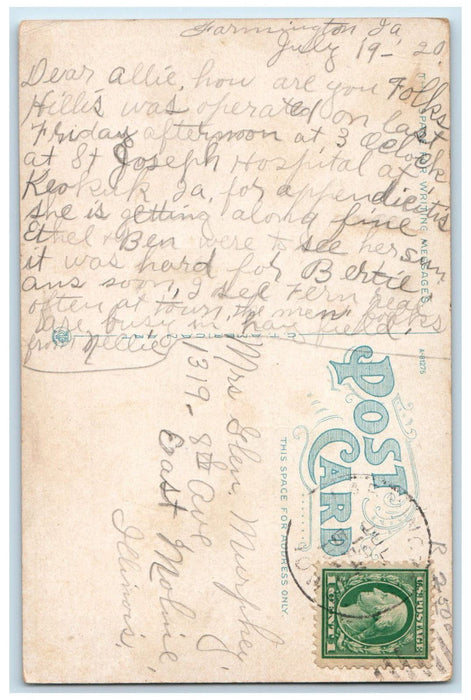 Farmington Ia
July 19- 20.
Dear Allie, how are you Folks
Hillis was operated on last
Friday afternoon at 3 oclock
at St Joseph Hospital at
Keokuk Ia. for appendicitis
she is getting along fine
Ethel & Ben were to see her Sun
it was hard for Bertie
ans soon, I see Fern real
often at town, the men folks
are busy in hay field.
from Nellie
SPACE FOR WRITING MESSAGES
C.T. AMERICAN ART
A-81275
POST CARD
THIS SPACE FOR ADDRESS ONLY.
Mrs Glen Murphey,
1319- 8th Ave
East Moline
Illinois,
U.S. POSTAGE
1 CENT 1
R 250